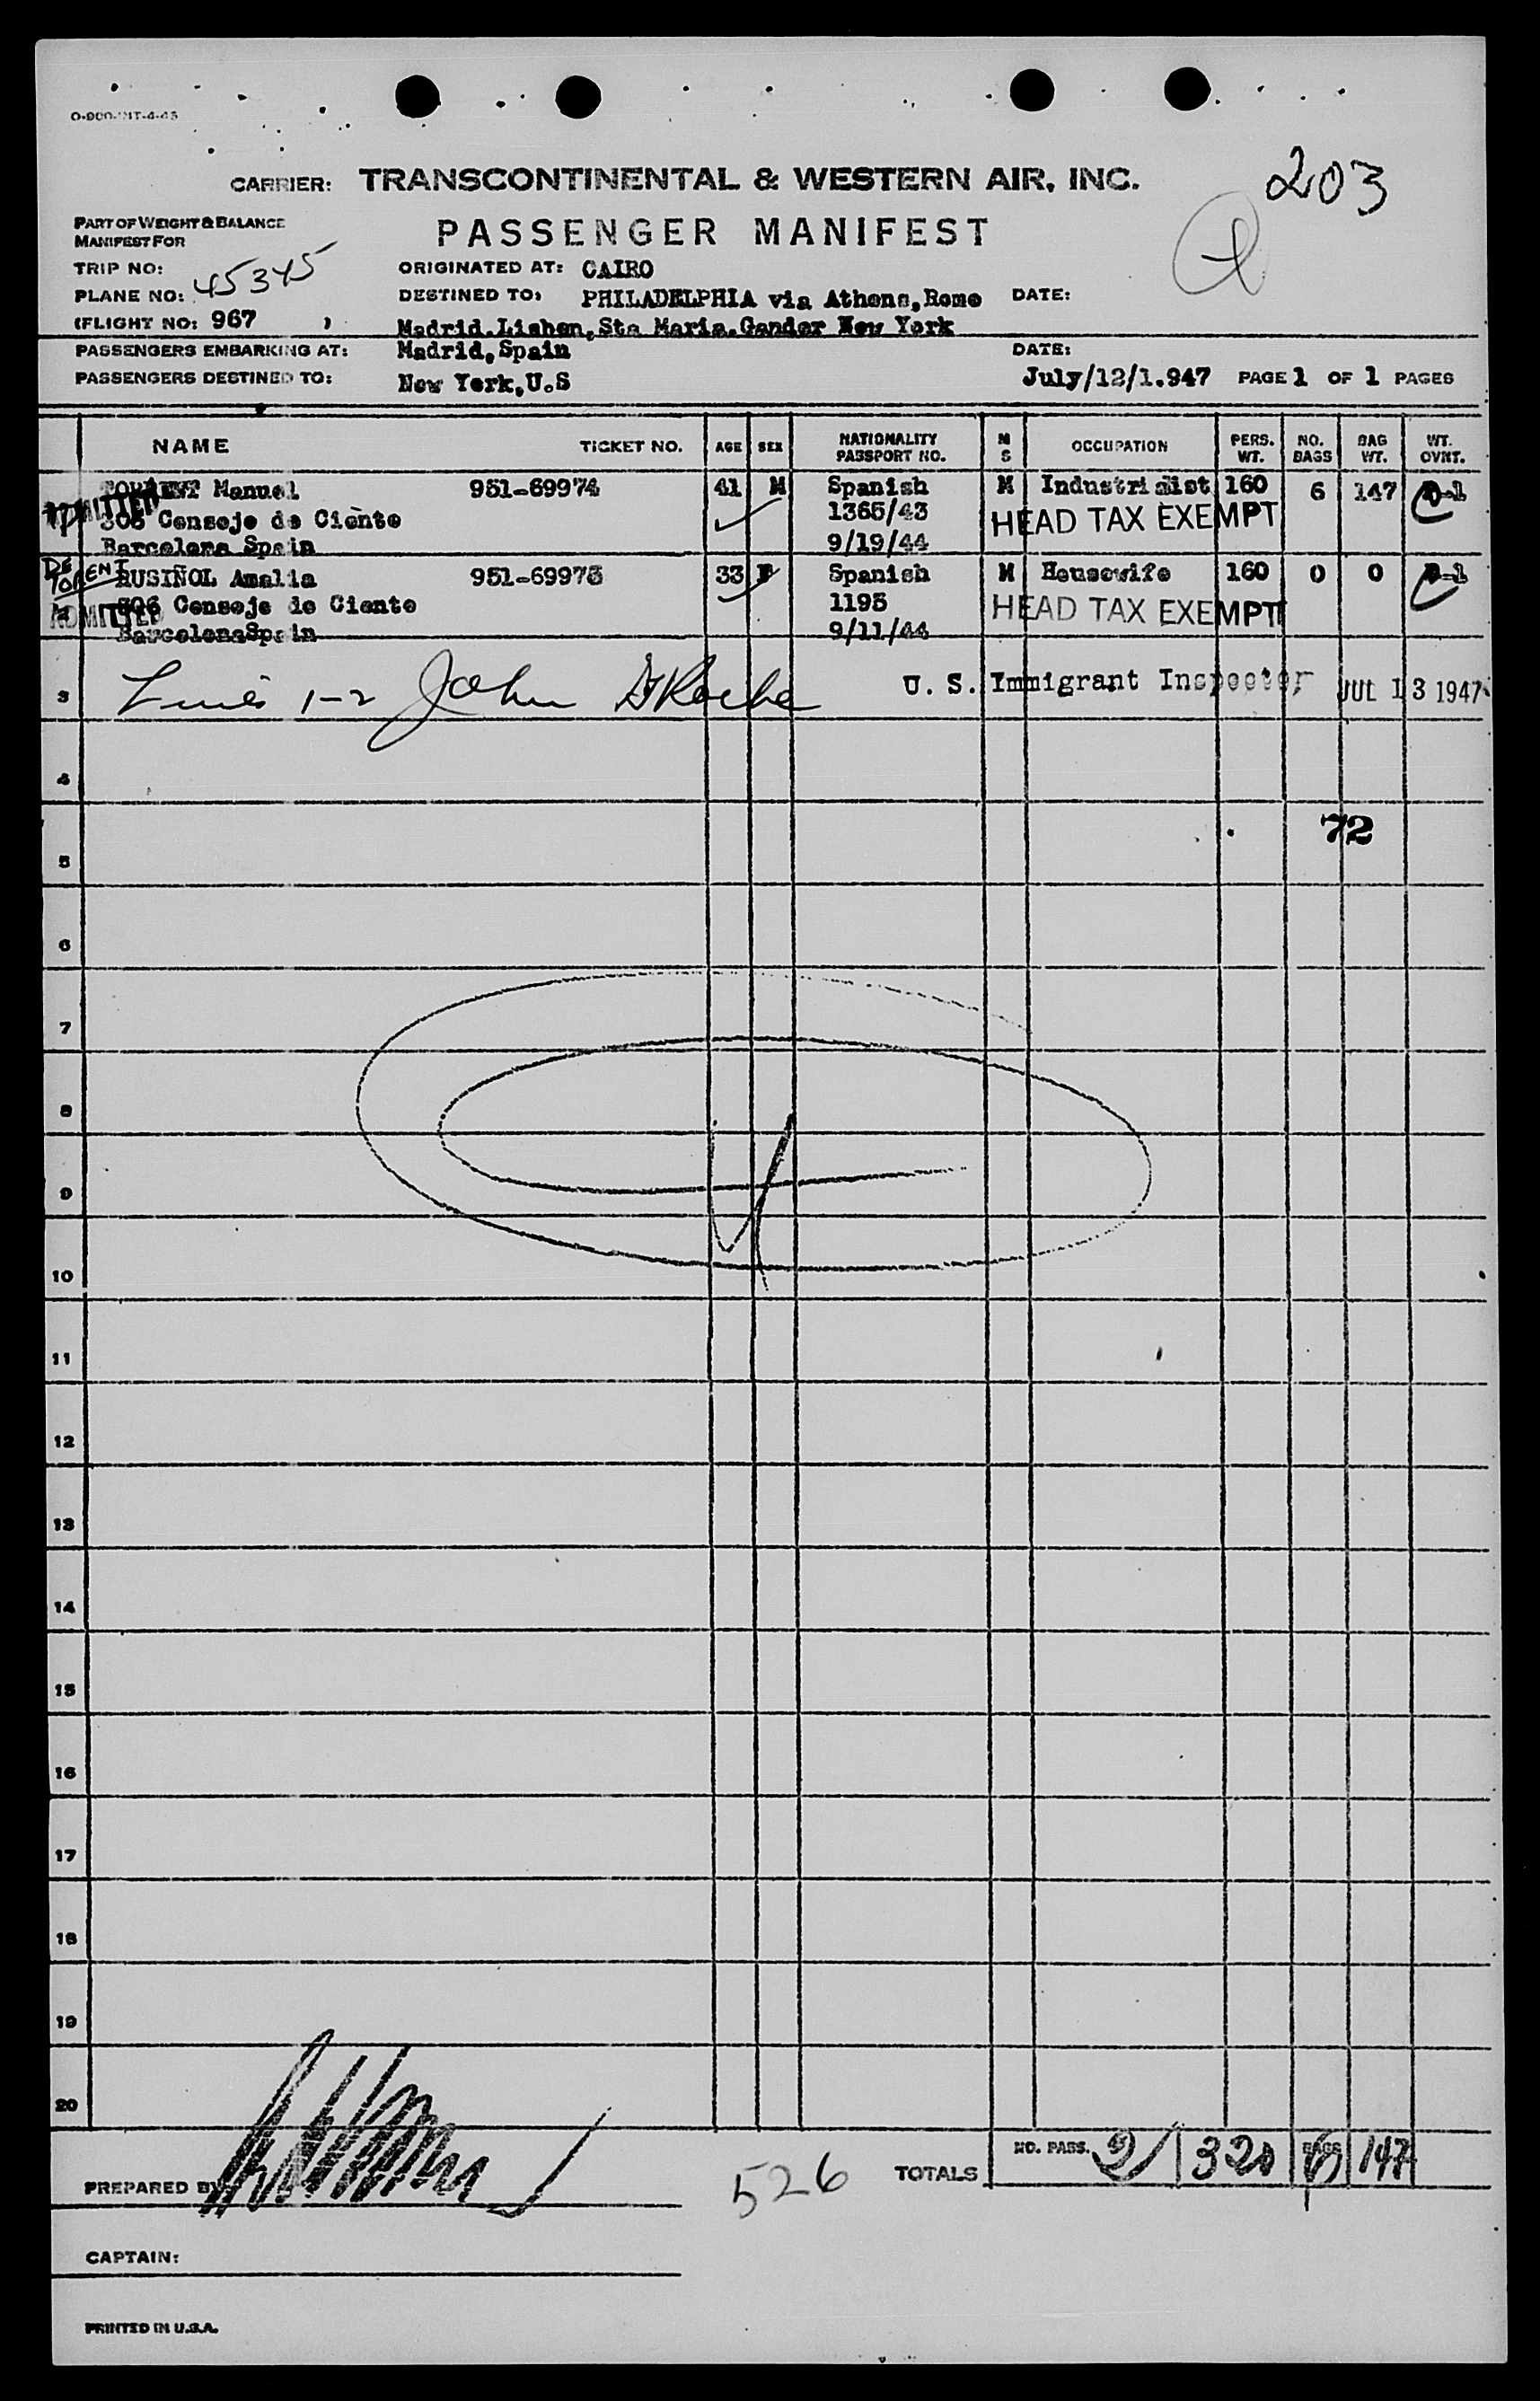 CARRIER: TRANSCONTINENTAL & WESTERN AIR, INC. 203
PART OF WEIGHT & BALANCE
MANIFEST FOR
PASSENGER MANIFEST
TRIP NO: 45345
ORIGINATED AT: CAIRO
PLANE NO:
DESTINED TO: PHILADELPHIA via Athens, Rome DATE:
(FLIGHT NO: 967 )
Madrid.Lisbon,Sta Maria.Gander New York
PASSENGERS EMBARKING AT: Madrid, Spain DATE:
PASSENGERS DESTINED TO: New York,U.S July/12/1.947 PAGE 1 OF 1 PAGES
NAME TICKET NO. AGE SEX NATIONALITY PASSPORT NO. M S OCCUPATION PERS. WT. NO. BAGS BAG WT. WT. OVNT.
Manuel 951-69974 41 M Spanish M Industrialist 160 6 147
ADMITTED 306 Consejo de Ciento 1365/43 HEAD TAX EXEMPT
Barcelona Spain 9/19/44
DE TORENT RUSIÑOL Amalia 951-69973 33 F Spanish M Housewife 160 0 0
ADMITTED 306 Consejo de Ciento 1195 HEAD TAX EXEMPT
BarcelonaSpain 9/11/44
3 Lines 1-2 John Roche U. S. Immigrant Inspector JUL 13 1947
4
72
5
6
7
8
9
10
11
12
13
14
15
16
17
18
19
20
NO. PASS. 2 320 BAGS 6 147
TOTALS
PREPARED BY: 526
CAPTAIN:
PRINTED IN U.S.A.